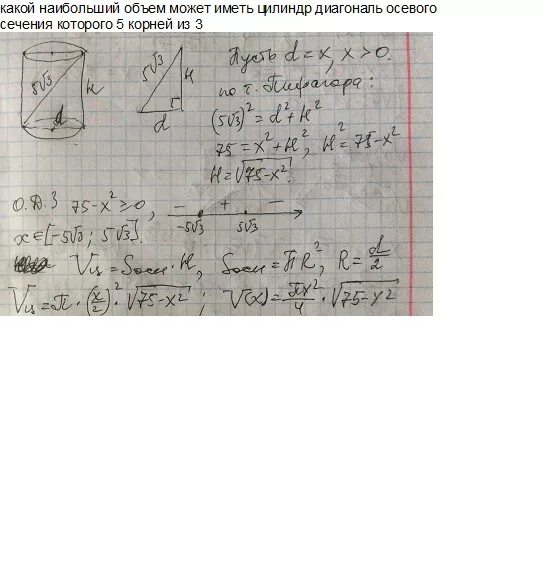 какой наибольший объем может иметь цилиндр диагональ осевого
сечения которого 5 корней из 3
5√3 H d
5√3 H d
Пусть d = x, x > 0.
по т. Пифагора:
(5√3)² = d² + H²
75 = x² + H², H² = 75 - x²
H = √75-x².
О.Д.З 75 - x² ≥ 0, − + −
-5√3 5√3
x ∈ [-5√3 ; 5√3].
Vц = Sосн · H, Sосн = πR², R = d/2
Vц = π · (x/2)² · √75-x² ; V(x) = πx²/4 · √75-x²